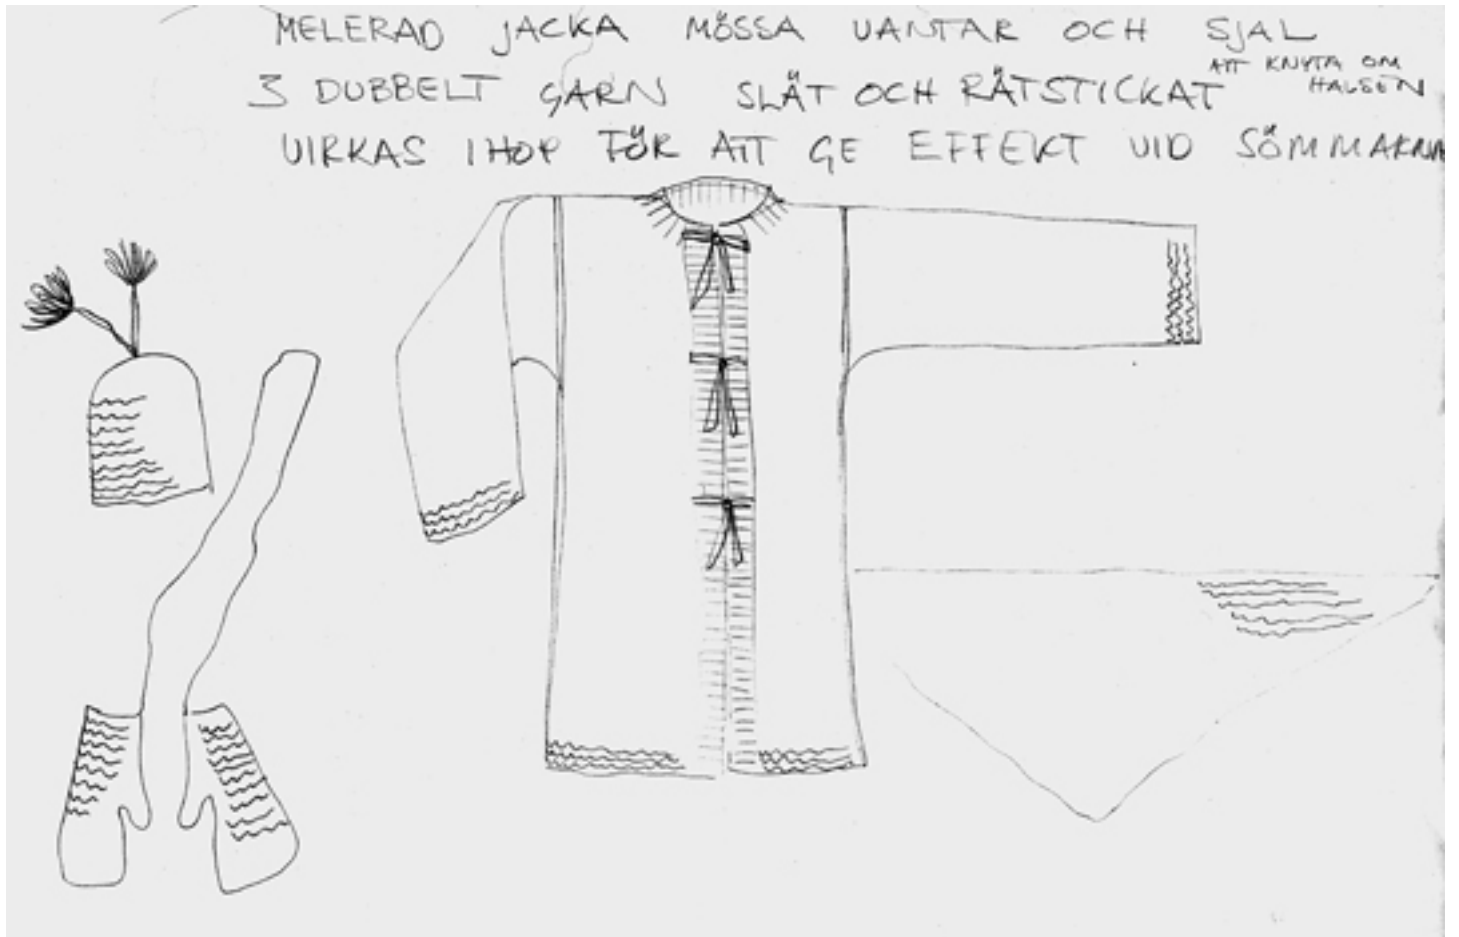 MELERAD JACKA MÖSSA VANTAR OCH SJAL
ATT KNYTA OM
HALSEN
3 DUBBELT GARN SLÄT OCH RÄTSTICKAT
VIRKAS IHOP FÖR ATT GE EFFEKT VID SÖMMARNA